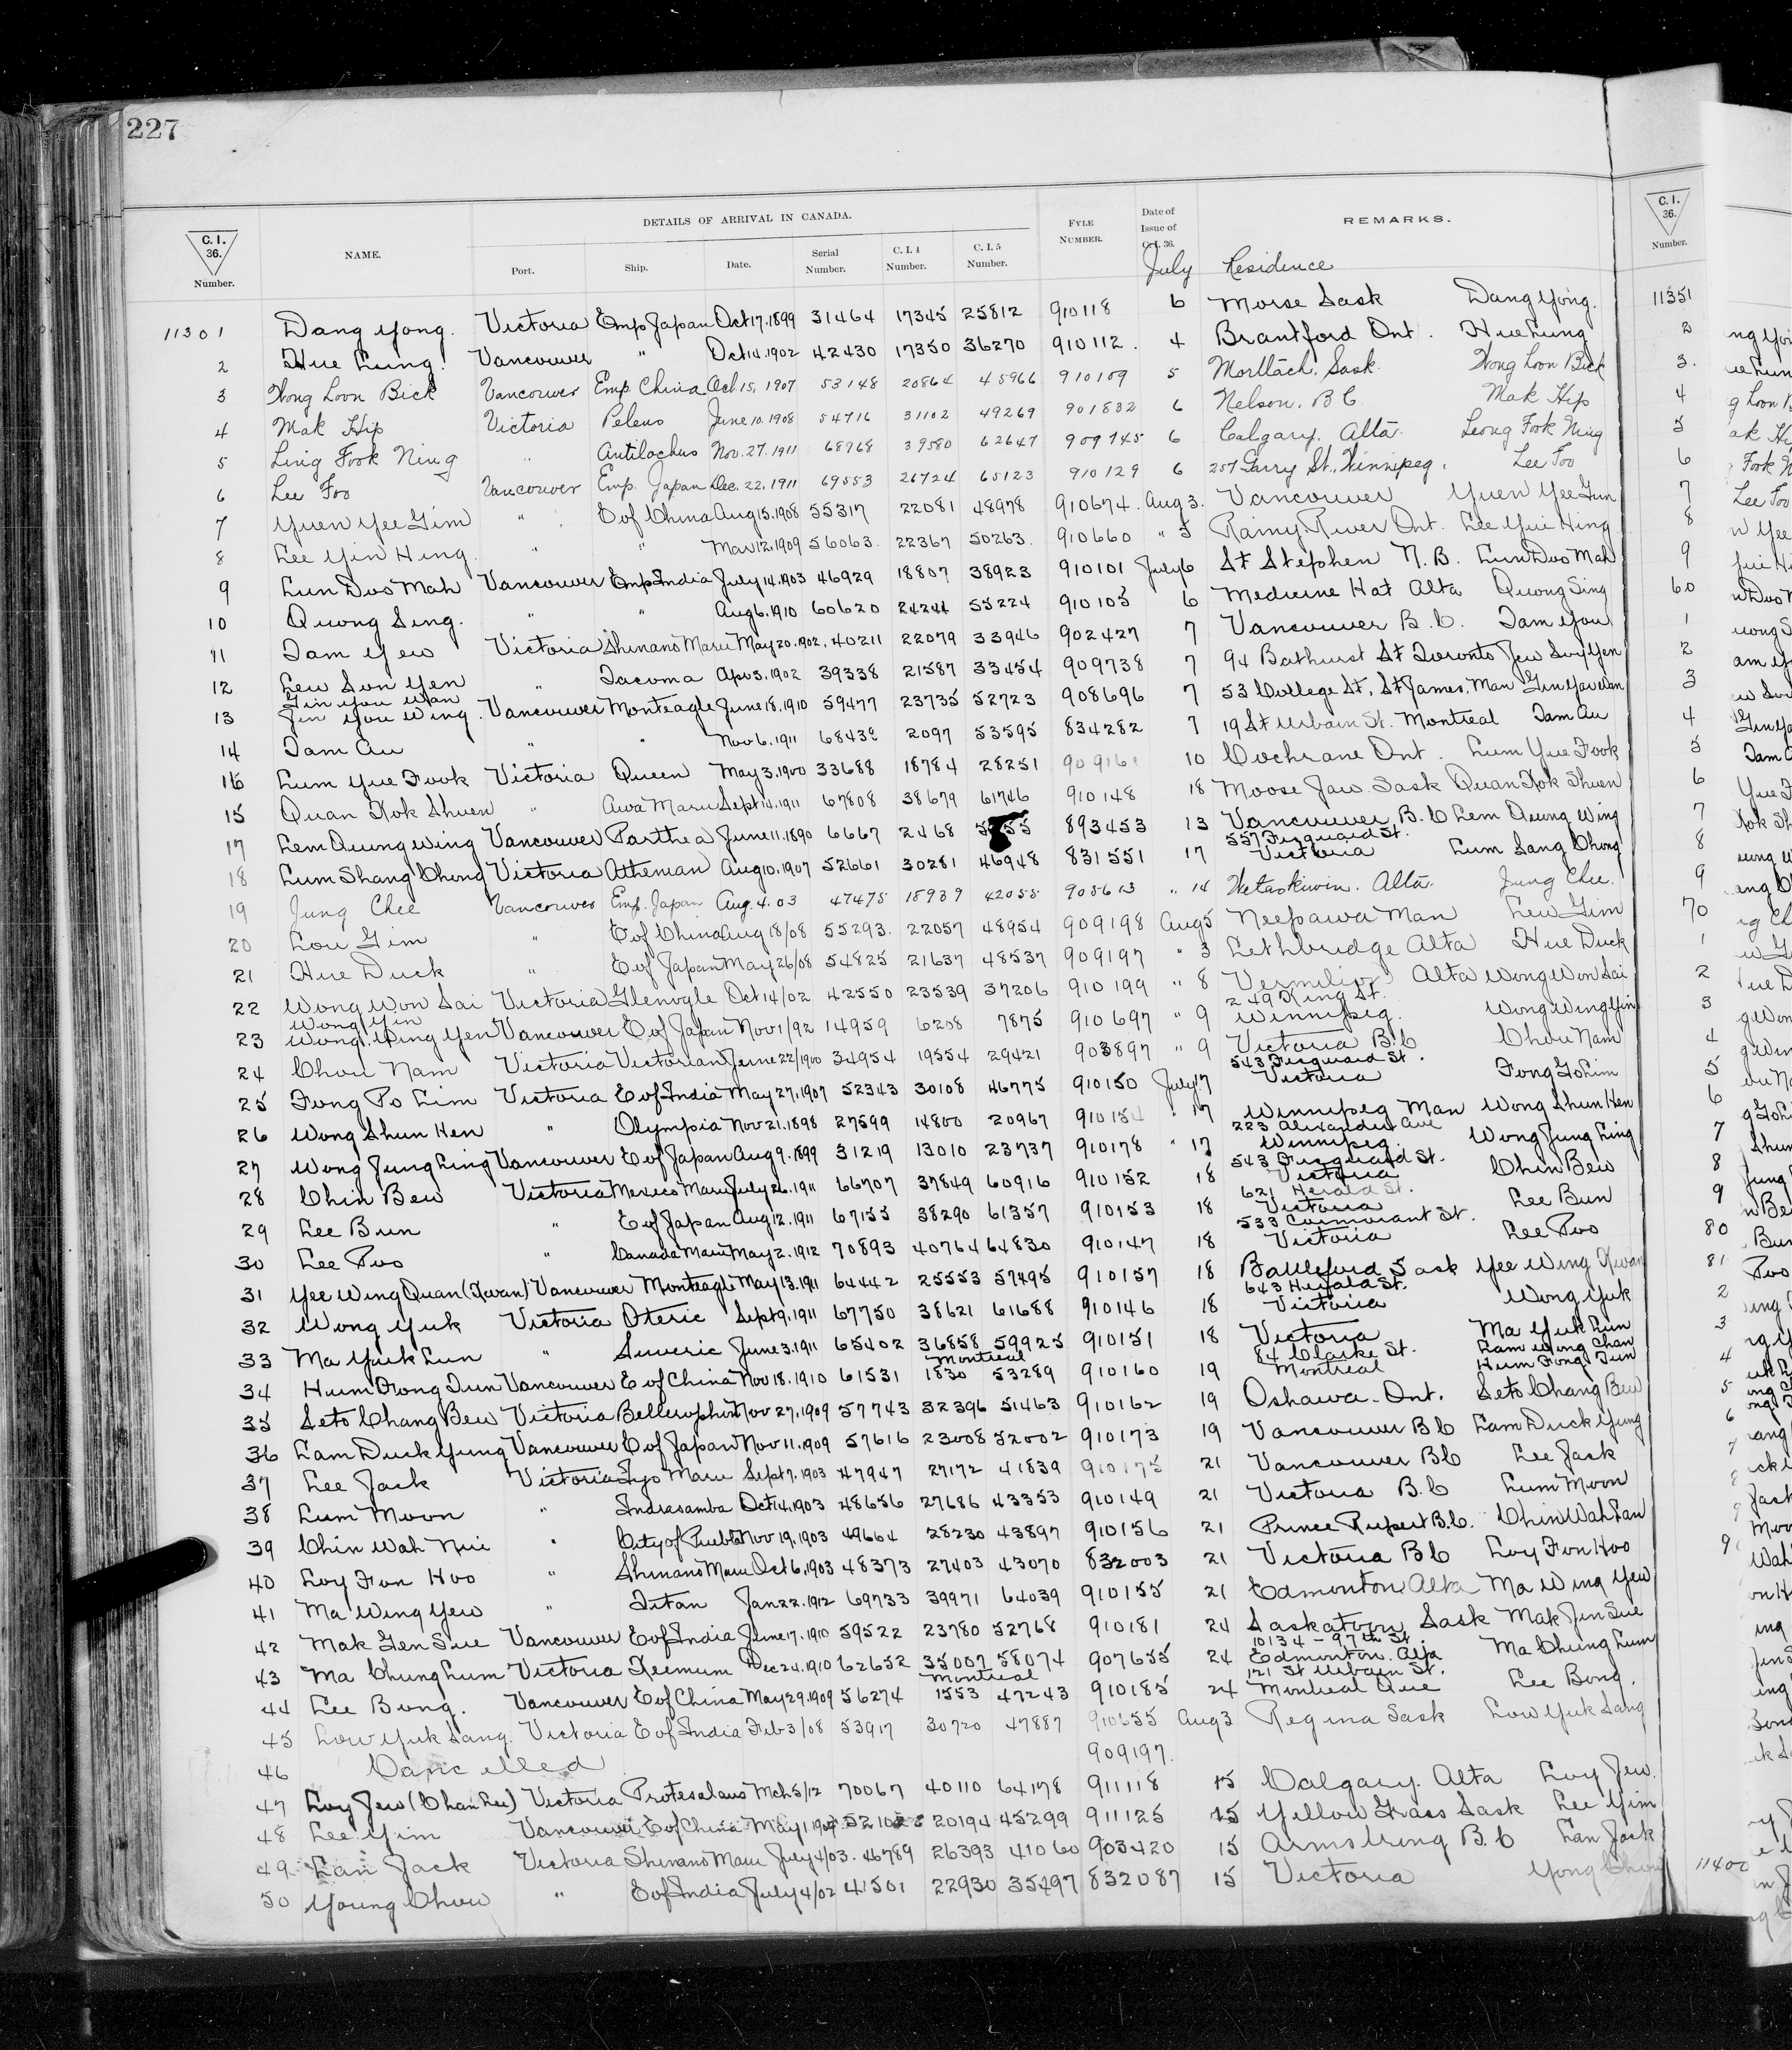 227
DETAILS OF ARRIVAL IN CANADA.
C. I. 36. Number. NAME. Port. Ship. Date. Serial Number. C. I. 4 Number. C. I. 5 Number. FYLE NUMBER. Date of Issue of C. I. 36. REMARKS. C. I. 36. Number.
July Residence
11301 Dang Yong. Victoria Emp Japan Oct 17. 1899 31464 17345 25812 910118 6 Morse Sask Dang Yong. 11351
2 Hue Lung. Vancouver " Oct 14. 1902 42430 17350 36270 910112. 4 Brantford Ont. Hue Lung 2
3 Wong Loon Bick Vancouver Emp. China Oct 15, 1907 53148 20864 45966 910109 5 Mortlach, Sask. Wong Loon Bick 3.
4 Mak Hip Victoria Peleus June 10. 1908 54716 31102 49269 901832 6 Nelson, B C. Mak Hip 4
5 Ling Fook Ning " Antilochus Nov. 27. 1911 68968 39580 62647 909745 6 Calgary. Alta. Leong Fook Ning 5
6 Lee Foo Vancouver Emp. Japan Dec. 22. 1911 69553 26724 65123 910129 6 257 Garry St., Winnipeg. Lee Foo 6
7 Yuen Yee Gim " E of China Aug 15. 1908 55317 22081 48978 910674. Aug 3. Vancouver Yuen Yee Gun 7
8 Lee Yin Hing " " Mar 12. 1909 56063. 22367 50263. 910660 " 5 Rainy River Ont. Lee Yui Hing 8
9 Lun Duo Mah Vancouver Emp India July 14. 1903 46929 18807 38923 910101 July 6 St Stephen N. B. Lun Duo Mah 9
10 Quong Sing. " " Aug 6. 1910 60620 24244 55224 910105 6 Medicine Hat Alta Quong Sing 60
11 Tam Yew Victoria Shinano Maru May 20. 1902. 40211 22079 33946 902427 7 Vancouver B. C. Tam You 1
12 Lew Son Yen " Tacoma Apr 3. 1902 39338 21587 33454 909738 7 94 Bathurst St Toronto Jew Suy Yen 2
Gin You Wan
13 Jin You Wing. Vancouver Monteagle June 18. 1910 59477 23735 52723 908696 7 53 College St, St James, Man Gin Yow Wan 3
14 Tam Au " " Nov 6. 1911 68438 2097 53595 834282 7 19 St Urbain St. Montreal Tam Au 4
16 Lum Yue Fook Victoria Queen May 3. 1900 33688 18784 28251 909161 10 Cochrane Ont. Lum Yue Fook 5
15 Quan Kok Shuen " Awa Maru Sept 14. 1911 67808 38679 61746 910148 18 Moose Jaw. Sask Quan Kok Shuen 6
17 Lem Aung Wing Vancouver Parthea June 11. 1890 6667 2468 893453 13 Vancouver B. C Lem Aung Wing 7
557 Fisguard St.
18 Lum Shang Chong Victoria Athenian Aug 10. 1907 52661 30281 46948 831551 17 Victoria Lum Sang Chong 8
19 Jung Chee Vancouver Emp. Japan Aug. 4. 03 47475 18939 42055 905613 " 14 Wetaskiwin. Alta. Jung Chee. 9
20 Lou Gim " E of China Aug 18/08 55293. 22057 48954 909198 Aug 5 Neepawa Man Lew Gim 70
21 Hue Duck " E of Japan May 26/08 54825 21637 48537 909197 " 3 Lethbridge Alta Hue Duck 1
22 Wong Won Sai Victoria Glenogle Oct 14/02 42550 23539 37206 910199 " 8 Vermilion Alta Wong Won Sai 2
Wong Yin 249 King St.
23 Wong Wing Yen Vancouver E of Japan Nov 1/92 14959 6208 7875 910697 " 9 Winnipeg. Wong Wing Yin 3
24 Chou Nam Victoria Victorian June 22/1900 34954 19554 29421 903897 " 9 Victoria B. C Chou Nam 4
543 Fisguard St.
25 Fong Po Lim Victoria E of India May 27. 1907 52343 30108 46775 910150 July 17 Victoria Fong Go Lim 5
26 Wong Shun Hen " Olympia Nov 21. 1898 27599 14800 20967 910184 17 Winnipeg Man Wong Shun Hen 6
223 Alexander Ave
27 Wong Jung Ling Vancouver E of Japan Aug 9. 1899 31219 13010 23737 910178 " 17 Winnipeg. Wong Jung Ling 7
543 Fisguard St.
28 Chin Bew Victoria Mexico Maru July 26. 1911 66707 37849 60916 910152 18 Victoria Chin Bew 8
621 Herald St.
29 Lee Bun " E of Japan Aug 12. 1911 67155 38290 61357 910153 18 Victoria Lee Bun 9
533 Cormorant St.
30 Lee Poo " Canada Maru May 2. 1912 70893 40764 64830 910147 18 Victoria Lee Poo 80
31 Yee Wing Quan (Kwan) Vancouver Monteagle May 13. 1911 64442 25553 57495 910157 18 Battleford Sask Yee Wing Kwan 81
643 Herald St.
32 Wong Yuk Victoria Oteric Sept 9. 1911 67750 38621 61688 910146 18 Victoria Wong Yuk 2
33 Ma Yuck Lun " Suveric June 3. 1911 65402 36858 59925 910151 18 Victoria Ma Yuk Lun 3
Montreal 84 Clarke St. Lam Wong Chan
34 Hum Fong Tun Vancouver E of China Nov 18. 1910 61531 1830 53289 910160 19 Montreal Hum Fong Tun 4
35 Seto Chang Bew Victoria Bellerophon Nov 27. 1909 57743 32396 51463 910162 19 Oshawa. Ont. Seto Chang Bew 5
36 Lam Duck Yung Vancouver E of Japan Nov 11. 1909 57616 23008 52002 910173 19 Vancouver B C Lam Duck Yung 6
37 Lee Jack Victoria Iyo Maru Sept 7. 1903 47947 27172 41839 910175 21 Vancouver B C Lee Jack 7
38 Lum Moon " Indrasamba Oct 14. 1903 48656 27686 43353 910149 21 Victoria B. C Lum Moon 8
39 Chin Wah Nui " City of Puebla Nov 19. 1903 49664 28230 43897 910156 21 Prince Rupert B. C. Chin Wah Lau 9
40 Loy Fon Hoo " Shinano Maru Oct 6, 1903 48373 27403 43070 832003 21 Victoria B C Loy Fon Hoo 9
41 Ma Wing Yew " Titan Jan 22. 1912 69733 39971 64039 910155 21 Edmonton Alta Ma Wing Yew
42 Mak Gen Sue Vancouver E of India June 17. 1910 59522 23780 52768 910181 24 Saskatoon Sask Mak Jin Sue
10134 - 97th St.
43 Ma Chung Lum Victoria Keemum Dec 24. 1910 62652 35007 58074 907655 24 Edmonton. Alta Ma Chung Lum
Montreal 121 St Urbain St.
44 Lee Bong. Vancouver E of China May 29. 1909 56274 1553 47243 910185 24 Montreal Que Lee Bong.
45 Low Yuk Sang. Victoria E of India Feb 3/08 53917 30720 47887 910655 Aug 3 Regina Sask Low Yuk Sang
46 Cancelled 909197.
47 Loy Jew (Chan Lee) Victoria Proteselaus Mch 5/12 70067 40110 64178 911118 15 Calgary. Alta Loy Jew.
48 Lee Yim Vancouver E of China May 1 20194 45299 911125 15 Yellow Grass Sask Lee Yim
49. Lan Jack Victoria Shinano Maru July 4/03. 46789 26393 41060 903420 15 Armstrong B. C Lan Jack
50 Young Chow " E of India July 4/02 41501 22930 35497 832087 15 Victoria Yong Chow 11400